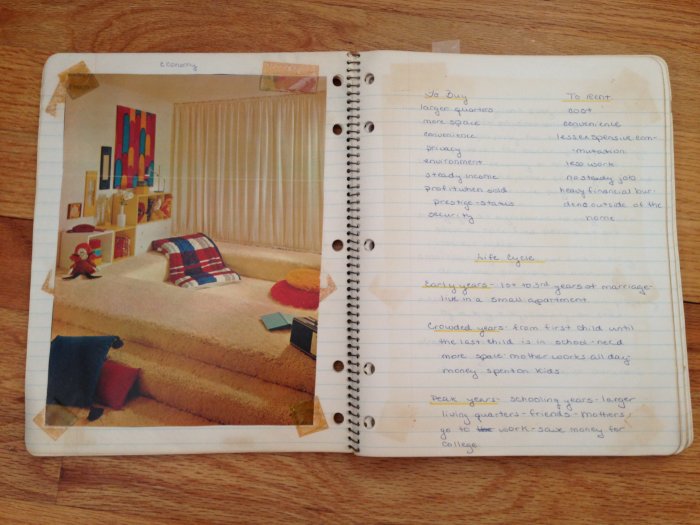 economy
To Buy To Rent
larger quarters cost
more space convenience
convenience less expensive com-
privacy mutation
environment less work
steady income no steady job
profit when sold heavy financial bur-
prestige-status dens outside of the
security home
Life Cycle
Early years - 1st to 3rd years of marriage-
live in a small apartment.
Crowded years - from first child until
the last child is in school - need
more space mother works all day
money spent on kids.
Peak years - schooling years - larger
living quarters - friends - mothers
go to work - save money for
college.